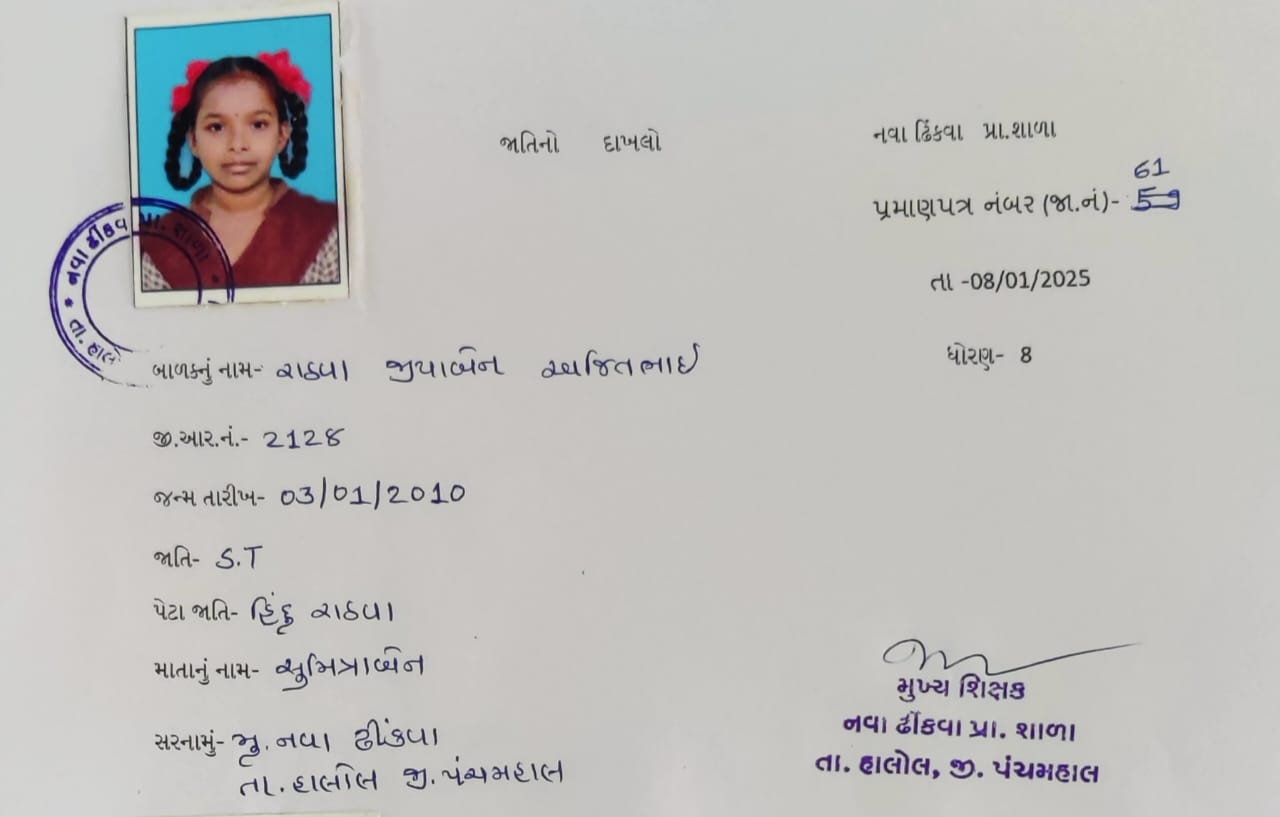 જાતિનો દાખલો
નવા ઢિંકવા પ્રા.શાળા
61
પ્રમાણપત્ર નંબર (જા.નં)-
તા -08/01/2025
નવા ઢીંકવા પ્રા. શાળા * તા. હાલો
બાળકનું નામ- રાઠવા જીયાબેન અજિતભાઈ
ધોરણ- 8
જી.આર.નં.- 2128
જન્મ તારીખ- 03/01/2010
જાતિ- S.T
પેટા જાતિ- હિંદુ રાઠવા
માતાનું નામ- સુમિત્રાબેન
સરનામું- મુ. નવા ઢીંકવા
તા. હાલોલ જી. પંચમહાલ
મુખ્ય શિક્ષક
નવા ઢીંકવા પ્રા. શાળા
તા. હાલોલ, જી. પંચમહાલ